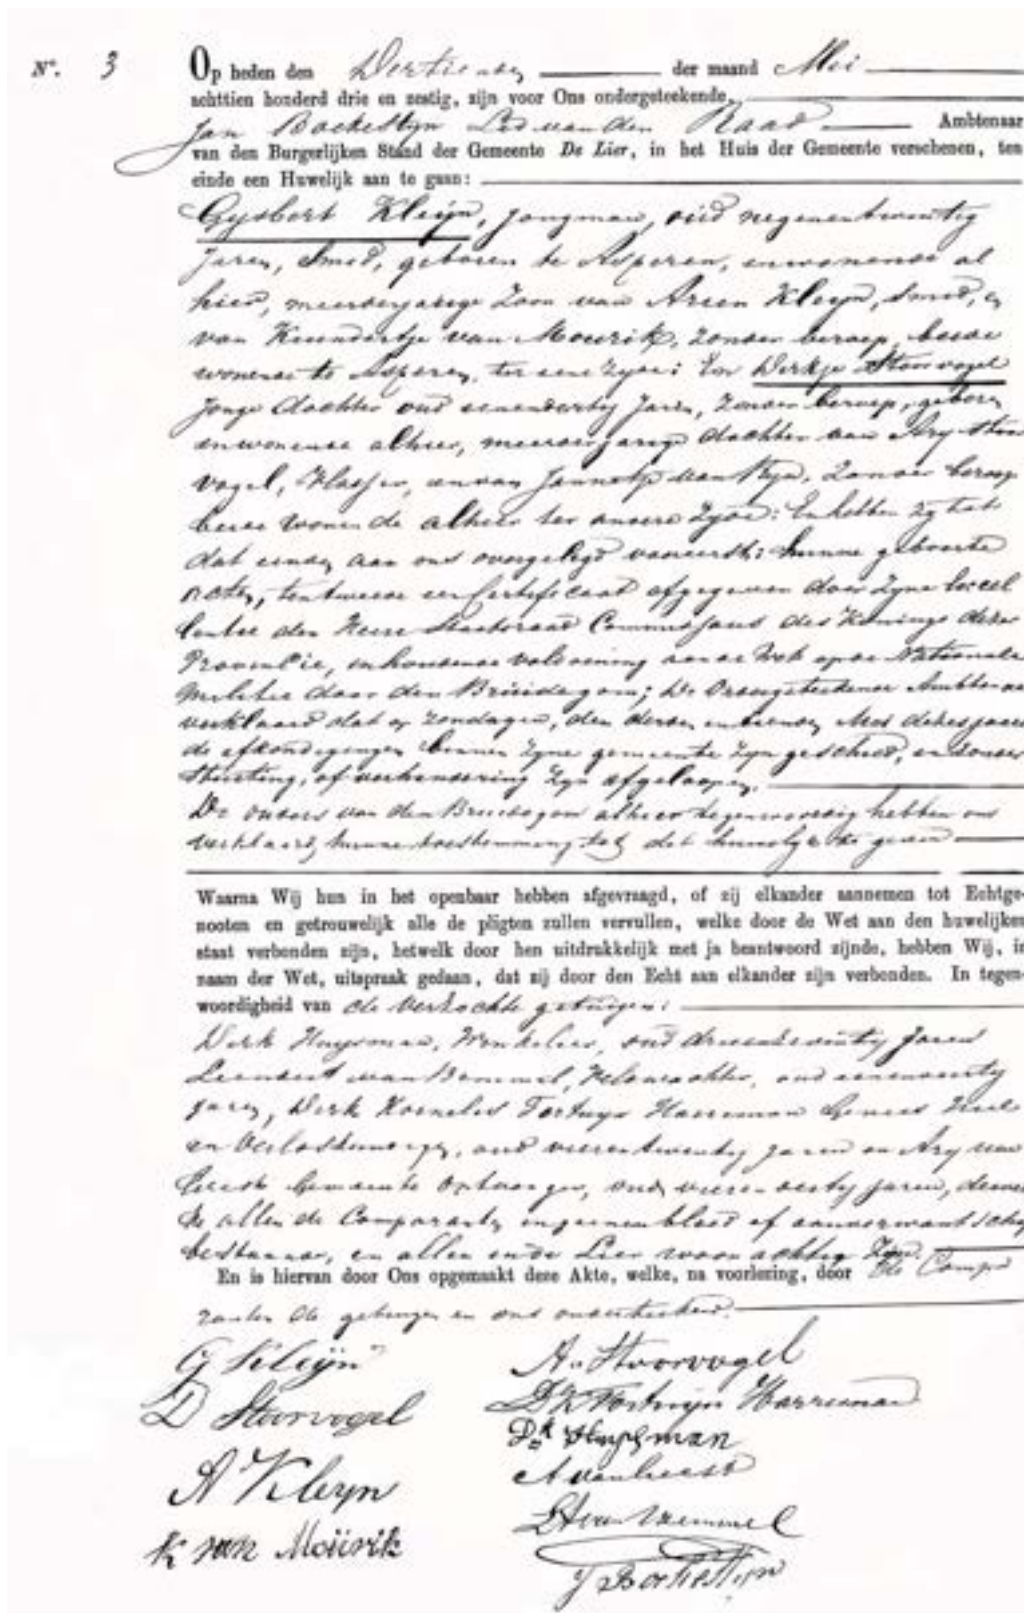 N°. 3 Op heden den Dertienden der maand Mei
achttien honderd drie en zestig, zijn voor Ons ondergeteekende,
Jan Boekestijn Lid van den Raad Ambtenaar
van den Burgerlijken Stand der Gemeente De Lier, in het Huis der Gemeente verschenen, ten
einde een Huwelijk aan te gaan:
Gysbert Kleijn, jongman, oud negenentwintig
Jaren, Smed, geboren te Asperen, en wonende al
hier, meerderjarige Zoon van Arien Kleyn, Smed, en
van Keundertje van Mourik, zonder beroep, beide
wonende te Asperen, ter eene zyde; En Dirkje Stoorvogel
Jonge dochter oud eenendertig Jaren, Zonder beroep, geboren
en wonende alhier, meerderjarige dochter van Ary Stoor
vogel, en van Jannetje van Ryn, Zonder beroep
beide wonende alhier ter andere Zyde: En hebben zy tot
dat einde, aan ons overgelegd vooreerst: hunne geboorte
acten, ten tweede een Certificaat afgegeven door Zyne Excel
lentie den Heere Staatsraad Commissaris des Konings dezer
Provintie, inhoudende voldoening aan de Wet op de Nationale
Militie door den Bruidegom; De Ondergeteekende Ambtenaar
verklaard dat op zondagen, den derden en tienden Mei dezes jaars
de afkondigingen binnen Zyne gemeente zyn geschied, en zonder
Stuiting, of verhindering zyn afgeloopen.
De ouders van den Bruidegom alhier tegenwoordig hebben ons
verklaard, hunne toestemming tot dit huwelijk te geven
Waarna Wij hun in het openbaar hebben afgevraagd, of zij elkander aannemen tot Echtge-
nooten en getrouwelijk alle de pligten zullen vervullen, welke door de Wet aan den huwelijken
staat verbonden zijn, hetwelk door hen uitdrukkelijk met ja beantwoord zijnde, hebben Wij, in
naam der Wet, uitspraak gedaan, dat zij door den Echt aan elkander zijn verbonden. In tegen-
woordigheid van de verzochte getuigen:
Dirk Huysman, Winkelier, oud jaren
Leendert van Bemmel, Veldwachter, oud
jaren, Dirk Kornelis Fortuyn Harreman Genees Heel
en Verloskundige, oud vierentwintig jaren en Ary van
Geest Gemeente Ontvanger, oud jaren, dewel
ke allen de Comparanten in geenen bloed of aanverwantschap
bestaande, en allen in de Lier woonachtig Zyn.
En is hiervan door Ons opgemaakt deze Akte, welke, na voorlezing, door de Compa
ranten de getuigen en ons onderteekend.
G Kleijn
D Stoorvogel
A Kleyn
K van Moúrik
A. Stoorvogel
D K Fortuijn Harreman
Dk Huysman
A van Geest
L van Bemmel
J Boekestijn